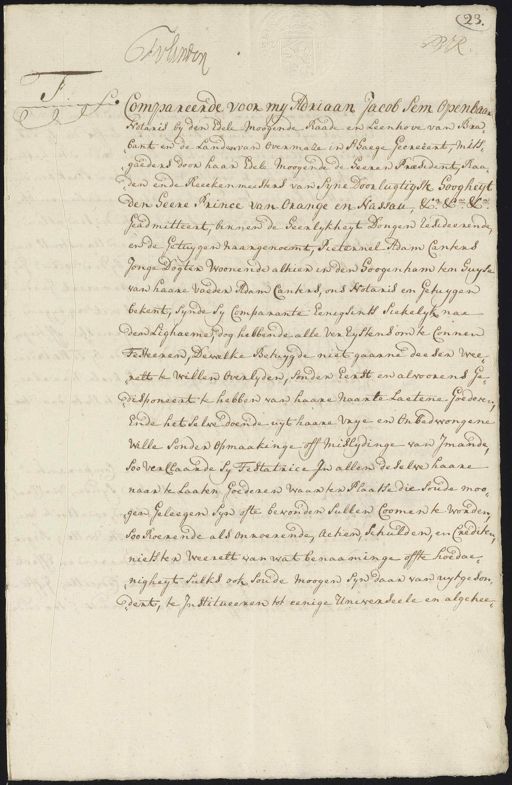 23.
Compareerde voor my Adriaan Jacob Sem Openbaar
Notaris by den Edele Moogende Raade en Leenhove van Bra-
bant en de Landen van Overmaze in sHaege Gecreëert, mits-
gaeders door haar Edele Moogende de Heeren President, Raa-
den ende Reekenmeesters van Syne Doorlugtigste Hoogheyt
den Heere Prince van Orange en Nassau, &ca &ca &ca
Geadmitteert, binnen de Heerlykheyt Dongen resideerende,
en de Getuygen naargenoemt, Pieternel Adam Cankers
Jonge Dogter Woonende alhier in den Hoogenham ten Huyse
van haare Vaeder Adam Cankers, ons Notaris en Getuygen
bekent, synde sy Comparante Eenigsints Siekelyk naar
den Lighaeme, dog hebbende alle Vereystens om te Connen
Testeeren, Dewelke Betuygde niet gaarne deesen Wee-
relt te willen Overlyden, sonder Eerst en alvoorens Ge-
desponeert te hebben van haare Naarte Laetene Goederen,
Ende het Selve doende uyt haare Vrye en Onbedwongene
Wille Sonder Opmaakinge off Mislydinge van Jmande,
Soo Verclaarde Sy Testatrice Jn allen deselve haare
naar te Laaten Goederen Waar ter Plaatse die Soude moo-
gen Geleegen Syn ofte bevonden Sullen Coomen te worden,
Soo Roerende als Onroerende, Actien, Schulden, en Crediten,
niets ter Weerelt van wat benaaminge offte hoedae-
nigheyt Sulks ook Soude Moogen Syn daar van uytgeson-
dert, te Jnstitueeren tot eenige Universeele en algehee-